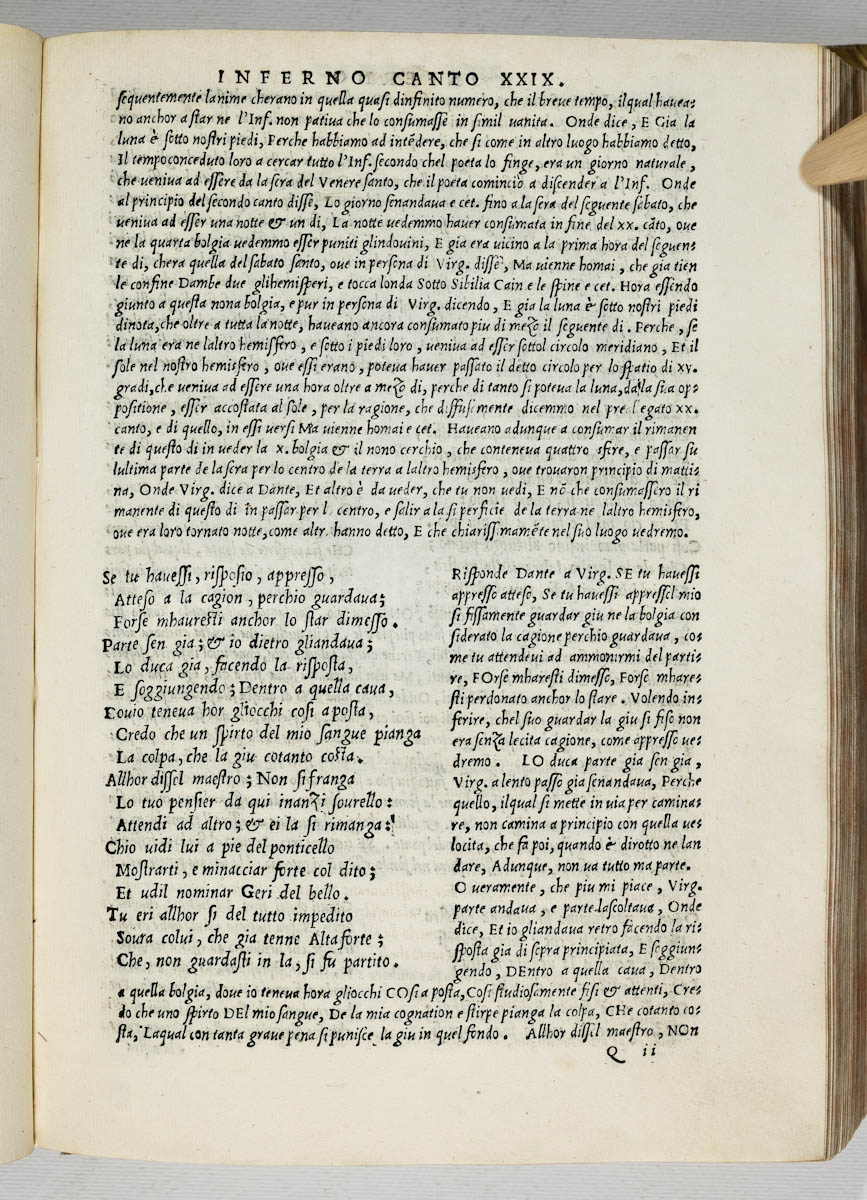 INFERNO CANTO XXIX.
sequentemente lanime cherano in quella quasi dinfinito numero, che il breve tempo, ilqual havea-
no anchor a star ne l'Inf. non pativa che lo consumasse in simil vanita. Onde dice, E Gia la
luna è sotto nostri piedi, Perche habbiamo ad intēdere, che si come in altro luogo habbiamo detto,
Il tempo conceduto loro a cercar tutto l'Inf. secondo chel poeta lo finge, era un giorno naturale,
che veniva ad essere da la sera del Venere santo, che il poeta cominciò a discender a l'Inf. Onde
al principio del secondo canto disse, Lo giorno senandava e cet. fino a la sera del seguente sabato, che
veniva ad esser una notte & un di, La notte vedemmo haver consumata in fine del xx. cāto, ove
ne la quarta bolgia vedemmo esser puniti glindovini, E gia era vicino a la prima hora del seguen-
te di, chera quella del sabato santo, ove in persona di Virg. disse, Ma vienne homai, che gia tien
le confine Dambe due glihemisperi, e tocca londa Sotto Sibilia Cain e le spine e cet. Hora essendo
giunto a questa nona bolgia, e pur in persona di Virg. dicendo, E gia la luna è sotto nostri piedi
dinota, che oltre a tutta la notte, haveano ancora consumato piu di mezo il seguente di. Perche, se
la luna era ne laltro hemisfero, e sotto i piedi loro, veniva ad esser sottol circolo meridiano, Et il
sole nel nostro hemisfero, ove essi erano, poteva haver passato il detto circolo per lo spatio di xv.
gradi, che veniva ad essere una hora oltre a mezo di, perche di tanto si poteva la luna, da la sua op-
positione, esser accostata al sole, per la ragione, che diffusamente dicemmo nel pre legato xx.
canto, e di quello, in essi versi Ma vienne homai e cet. Haveano adunque a consumar il rimanen
te di questo di in veder la x. bolgia & il nono cerchio, che conteneva quattro sfire, e passar su
lultima parte de la sera per lo centro de la terra a laltro hemisfero, ove trovaron principio di matti-
na, Onde Virg. dice a Dante, Et altro è da veder, che tu non vedi, E nō che consumassero il ri
manente di questo di in passar per l centro, e salir a la superficie de la terra ne laltro hemisfero,
ove era loro tornato notte, come altr hanno detto, E che chiarissimamēte nel suo luogo vedremo.
Se tu havessi, risposio, appresso,
Atteso a la cagion, perchio guardava;
Forse mhauresti anchor lo star dimesso.
Parte sen gia; & io dietro gliandava;
Lo duca gia, facendo la risposta,
E soggiungendo; Dentro a quella cava,
Dovio teneva hor gliocchi cosi a posta,
Credo che un spirto del mio sangue pianga
La colpa, che la giu cotanto costa.
Allhor dissel maestro; Non si franga
Lo tuo pensier da qui inanzi sovrello:
Attendi ad altro; & ei la si rimanga:
Chio vidi lui a pie del ponticello
Mostrarti, e minacciar forte col dito;
Et udil nominar Geri del bello.
Tu eri allhor si del tutto impedito
Sovra colui, che gia tenne Altaforte;
Che, non guardasti in la, si fu partito.
Risponde Dante a Virg. SE tu havessi
appresso atteso, Se tu havessi appressel mio
si fissamente guardar giu ne la bolgia con
siderato la cagione perchio guardava, co-
me tu attendevi ad ammonirmi del parti-
re, FOrse mharesti dimesso, Forse mhare-
sti perdonato anchor lo stare. Volendo in-
ferire, chel suo guardar la giu si fiso non
era senza lecita cagione, come appresso ve-
dremo. LO duca parte gia sen gia,
Virg. a lento passo gia senandava, Perche
quello, ilqual si mette in via per camina-
re, non camina a principio con quella ve-
locita, che fa poi, quando è dirotto ne lan
dare, Adunque, non va tutto ma parte.
O veramente, che piu mi piace, Virg.
parte andava, e parte lascoltava, Onde
dice, Et io gliandava retro facendo la ri-
sposta gia di sopra principiata, E soggiun-
gendo, DEntro a quella cava, Dentro
a quella bolgia, dove io teneva hora gliocchi COsi a posta, Cosi studiosamente fisi & attenti, Cre-
do che uno spirto DEl mio sangue, De la mia cognation e stirpe pianga la colpa, CHe cotanto co-
sta, Laqual con tanta grave pena si punisce la giu in quel fondo. Allhor dissel maestro, NOn
Q ii